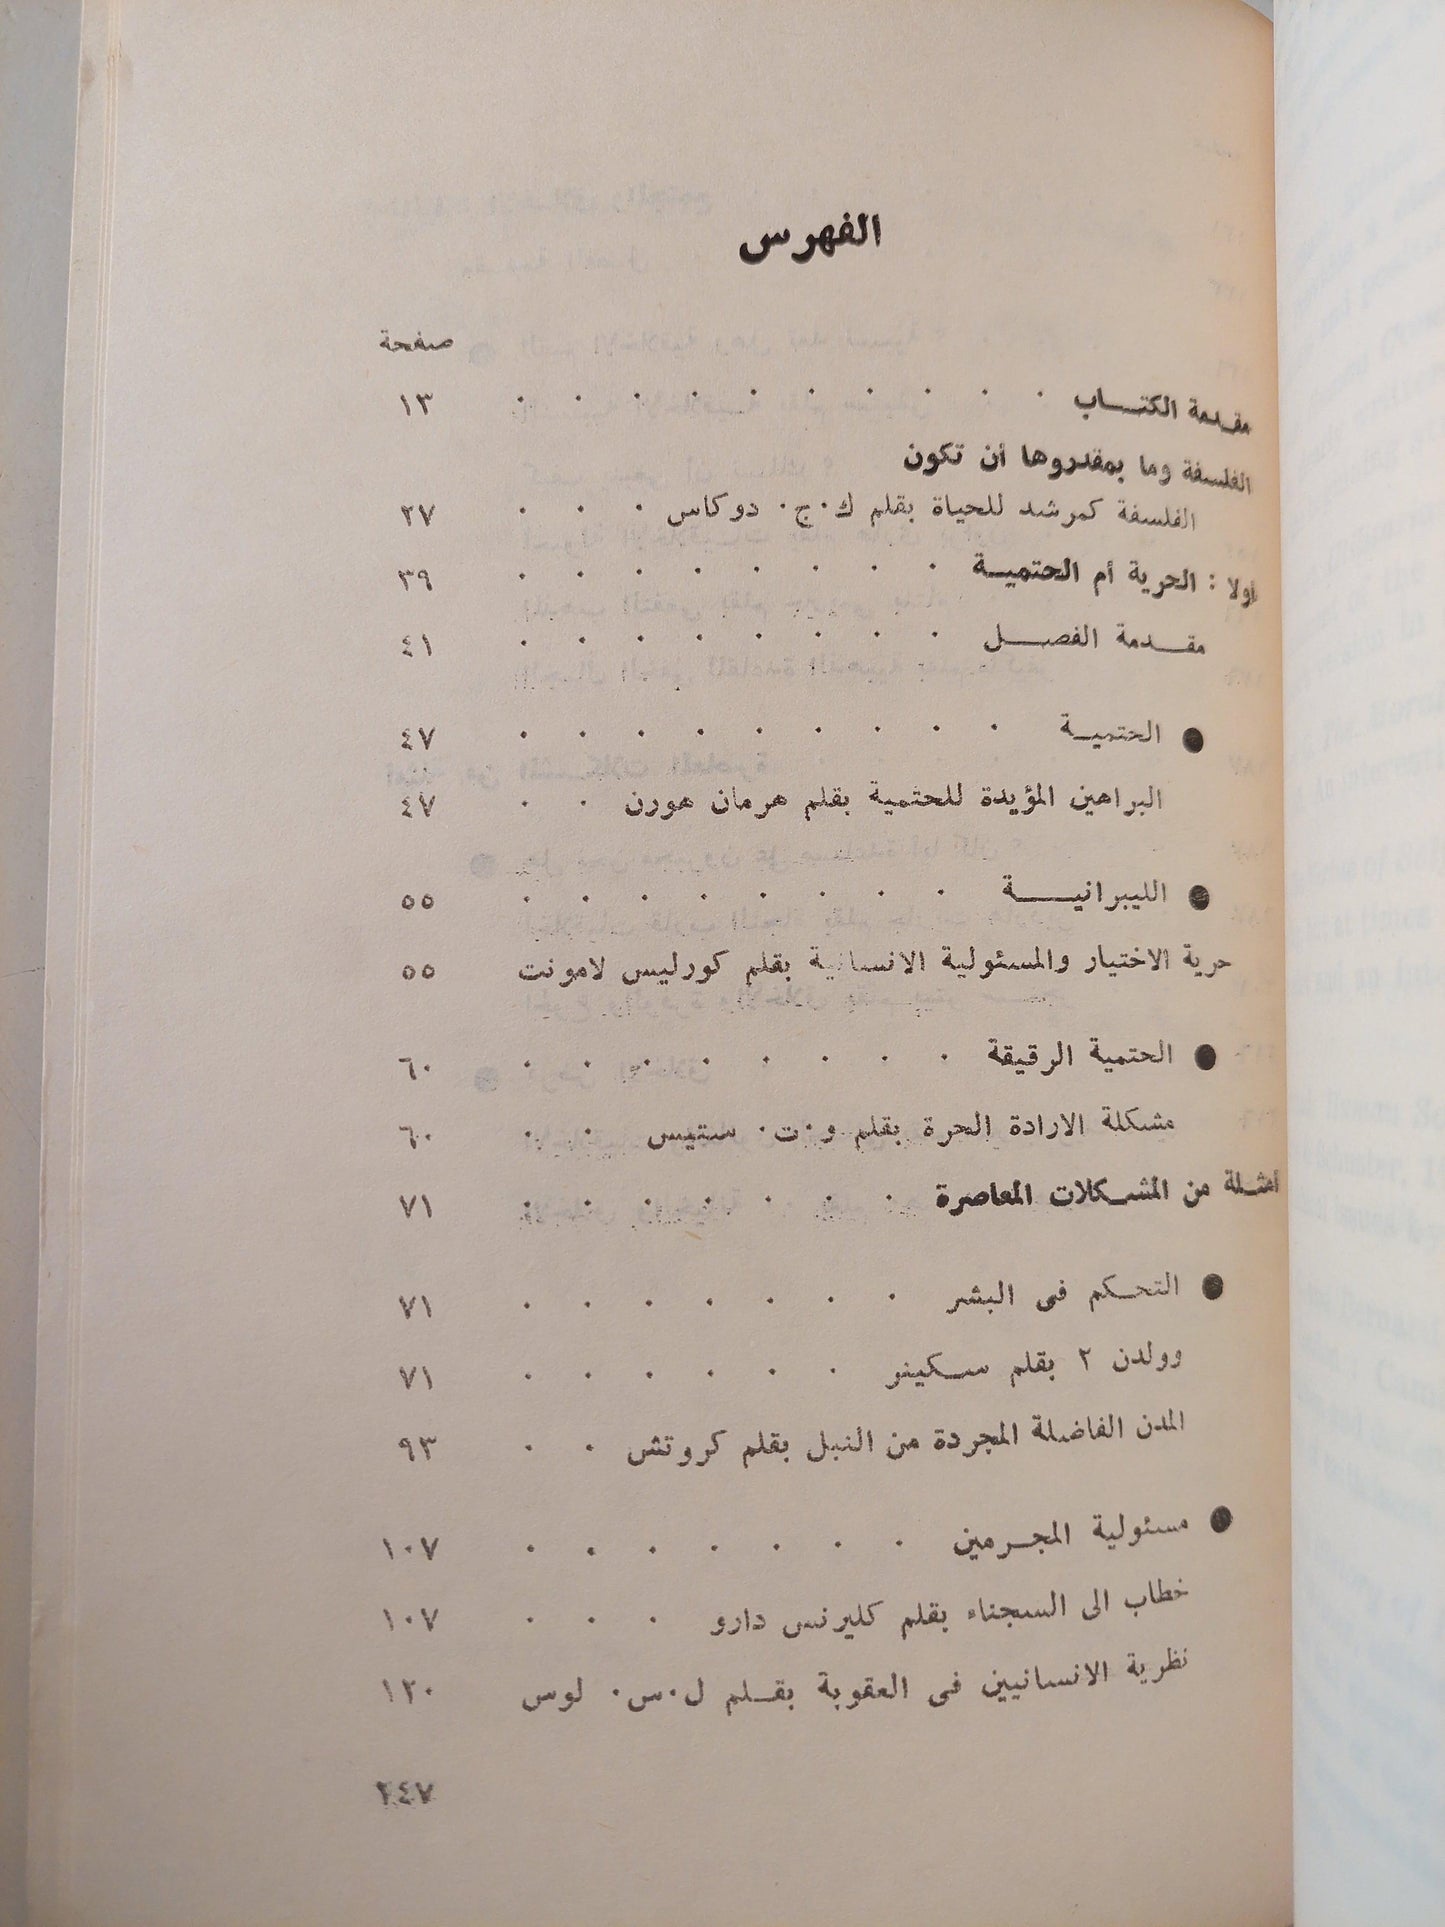 الفهرس
صفحة
مقدمة الكتــاب . . . . . . . . . . ١٣
الفلسفة وما بمقدروها أن تكون
الفلسفة كمرشد للحياة بقلم ك٠ج٠ دوكاس . . . ٢٧
أولا : الحرية أم الحتميــة . . . . . . . . ٣٩
مقــدمة الفصــل . . . . . . . . ٤١
● الحتميــة . . . . . . . . . ٤٧
البراهين المؤيدة للحتمية بقلم هرمان هورن . . ٤٧
● الليبرانيـــة . . . . . . . . ٥٥
حرية الاختيار والمسئولية الانسانية بقلم كورليس لامونت ٥٥
● الحتمية الرقيقة . . . . . . . . ٦٠
مشكلة الارادة الحرة بقلم و٠ت٠ ستيس . . ٦٠
أمثــلة من المشــكلات المعاصرة . . . . . . . ٧١
● التحــكم فى البشر . . . . . . . ٧١
وولدن ٢ بقلم ســكينر . . . . . . ٧١
المدن الفاضلة المجردة من النبل بقلم كروتش . . ٩٣
● مسئولية المجــرمين . . . . . . . ١٠٧
خطاب الى السجناء بقلم كليرنس دارو . . . ١٠٧
نظرية الانسانيين فى العقوبة بقــلم ل٠س٠ لوس ١٢٠
٢٤٧